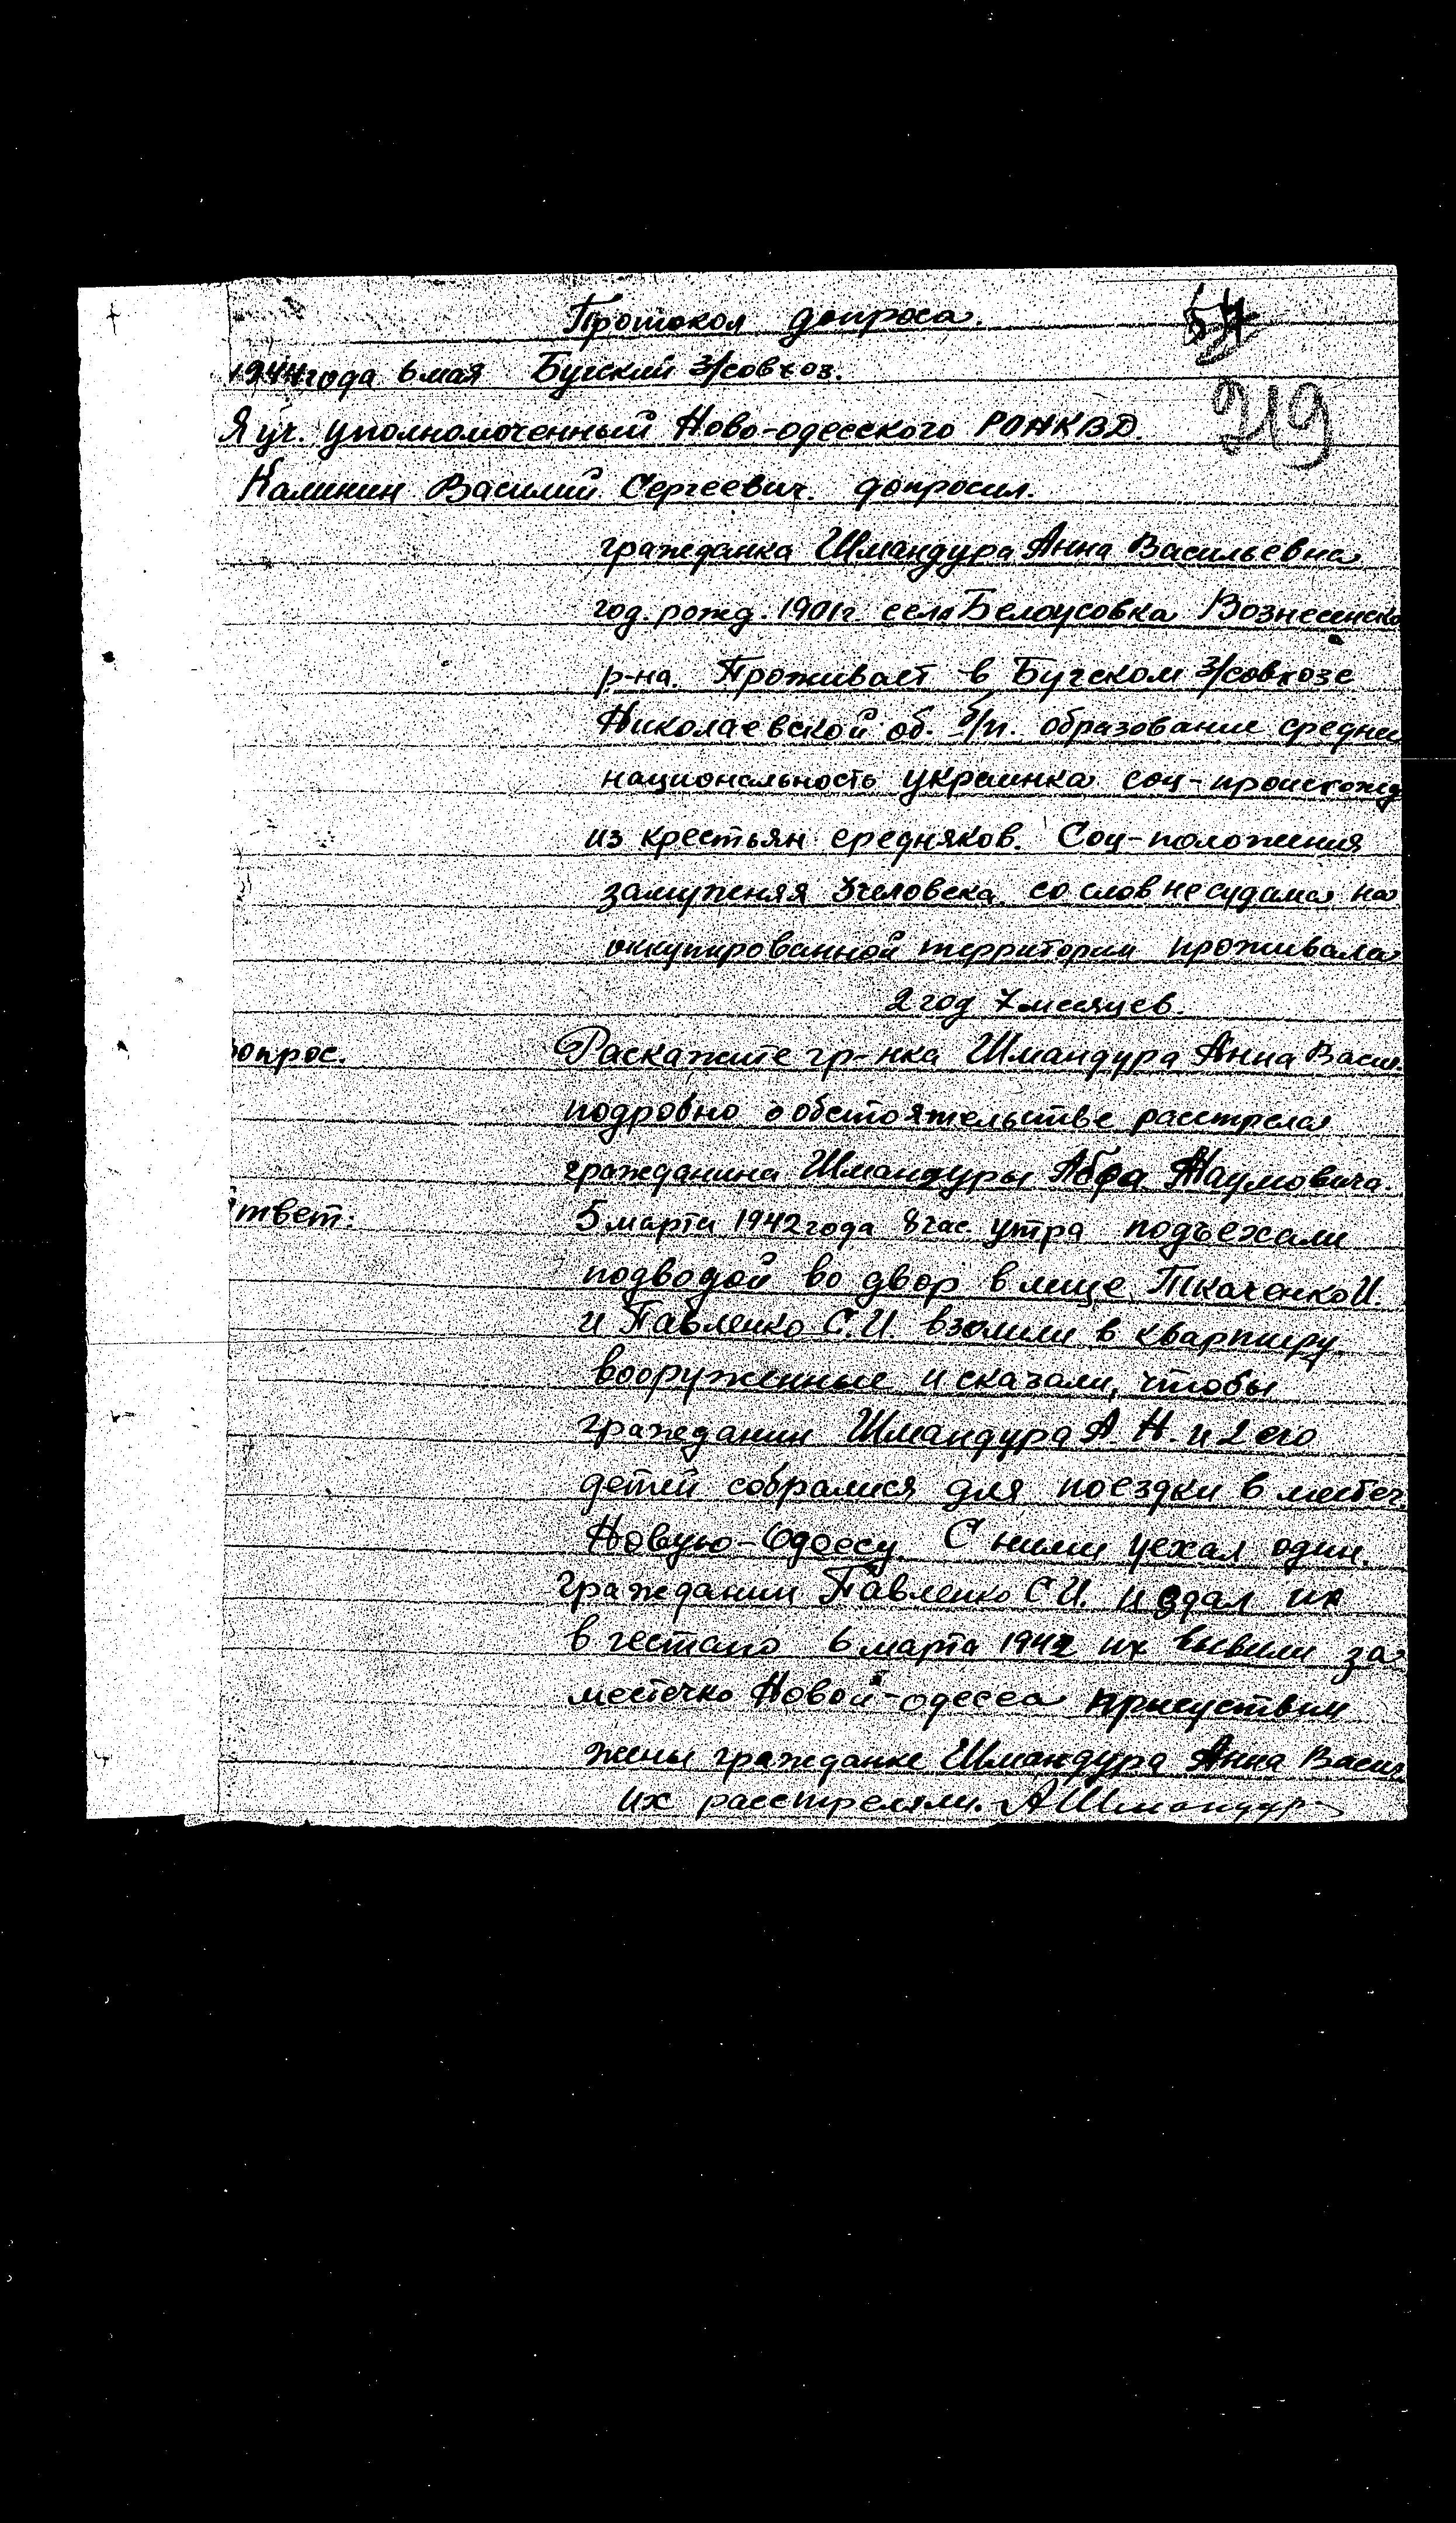 Протокол допроса. 54
1944 года 6 мая Бугский З/совхоз. 219
Я уч. уполномоченный Ново-одесского РОНКВД.
Калинин Василий Сергеевич. допросил.
гражданка Шмандура Анна Васильевна
год. рожд. 1901г. села Белоусовка Вознесенско
р-на. Проживает в Бугском З/совхозе
Николаевской об. б/п. образование средне
национальность украинка соц-происхожд
из крестьян середняков. Соц-положения
замужняя 3 человека. со слов не судима на
оккупированной территории проживала
2 год 7 месяцев.
опрос. Раскажите гр-нка Шмандура Анна Васил.
подробно о обстоятельстве расстрела
гражданина Шмандуры Наумовича.
твет: 5 марта 1942 года 8 час. утра подъехали
подводой во двор в лице Ткаченко И.
и Павленко С.И. в квартиру
вооруженные и сказали, чтобы
гражданин Шмандура А.Н. и 2 его
детей собрались для поездки в местеч.
Новую-Одессу. С ними уехал один.
гражданин Павленко С.И. и здал их
в гестапо 6 марта 1942 их вывели за
местечко Новой-одесса присуствии
жены гражданке Шмандура Анна Васил
их расстреляли. АШмандур